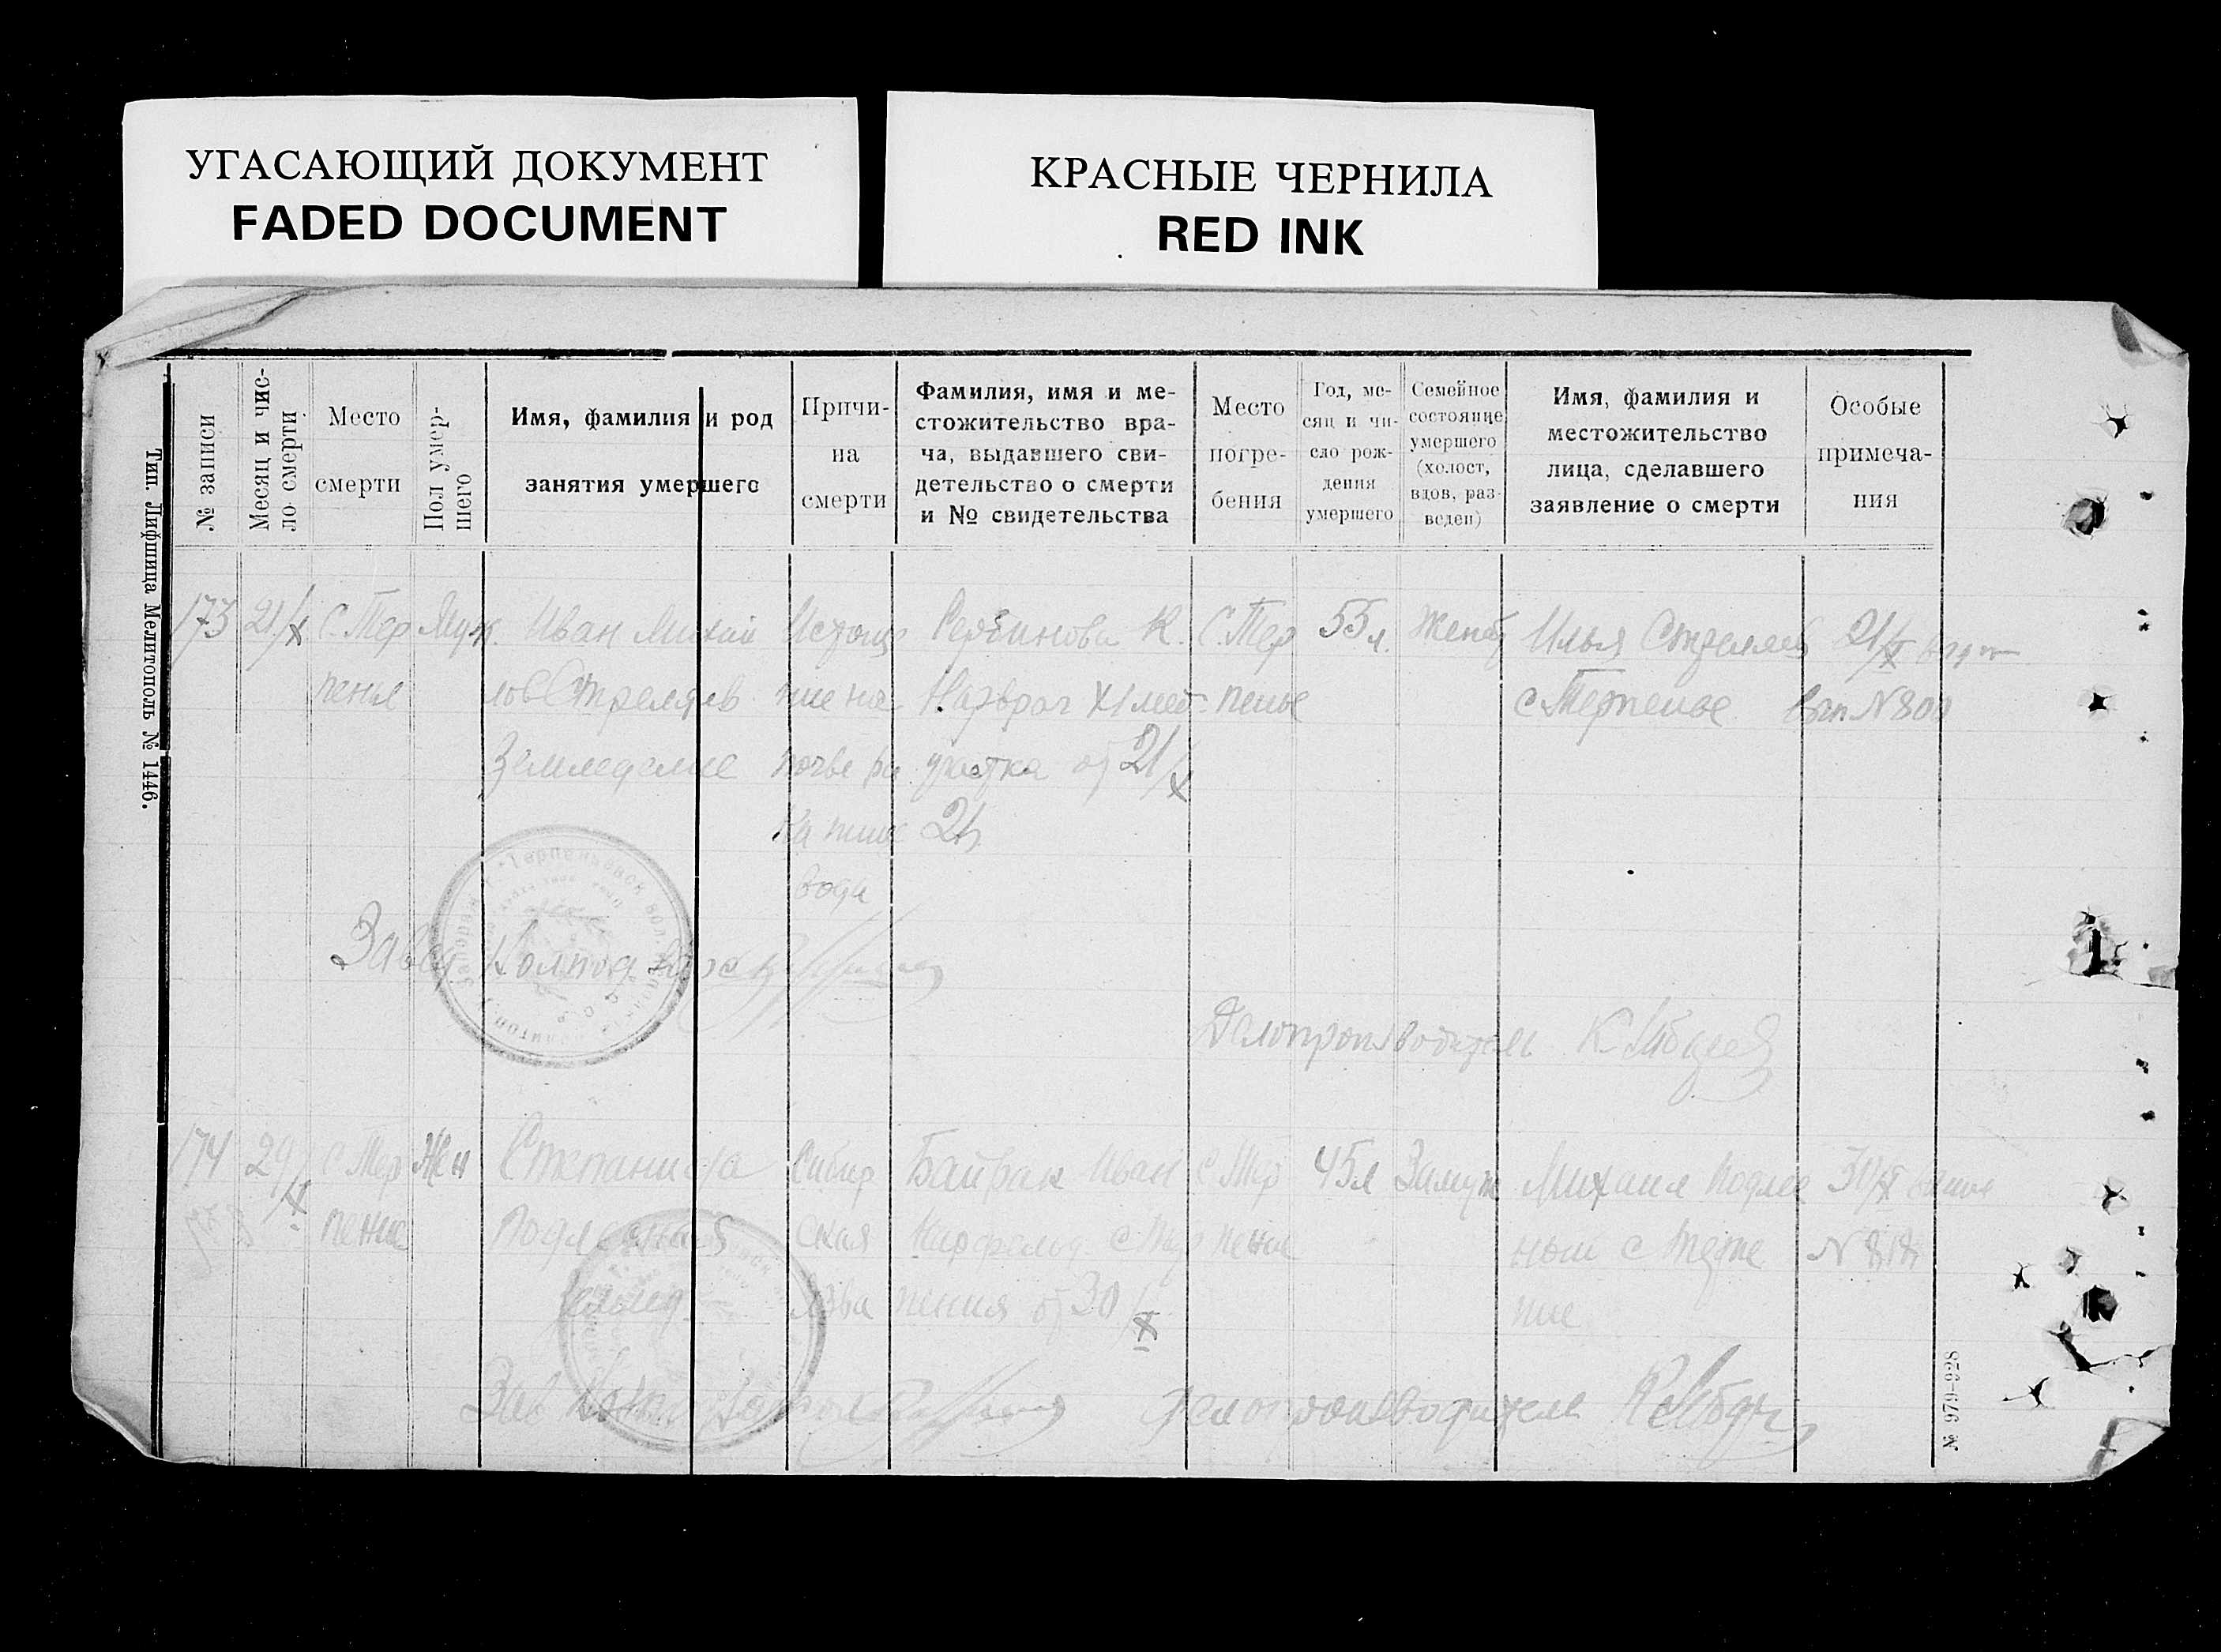 УГАСАЮЩИЙ ДОКУМЕНТ
FADED DOCUMENT
КРАСНЫЕ ЧЕРНИЛА
RED INK
Тип. Лифшица Мелитополь № 1446.
№ записи
Месяц и чис-
ло смерти
Место
смерти
Пол умер-
шего
Имя, фамилия и род
занятия умершего
Причи-
на
смерти
Фамилия, имя и ме-
стожительство вра-
ча, выдавшего сви-
детельство о смерти
и № свидетельства
Место
погре-
бения
Год, ме-
сяц и чи-
сло рож-
дения
умершего
Семейное
состояние
умершего
(холост,
вдов, раз-
веден)
Имя, фамилия и
местожительство
лица, сделавшего
заявление о смерти
Особые
примеча-
ния
173
21/X
С. Тер
пенье
Муж.
Иван Михай
лов Стреляев
Земледелие
Истоще
ние на
почве ра
ка пище
вода
Сербинова К.
Нарврач XI мед
участка от 21/X
21
С. Тер
пенье
55 л.
Женат
Илья Стреляев
с Терпенье
21/X
вып № 800
Зав
Делопроизводитель
174
29/X
с Тер
пение
Жен
Степанида
Подлесная
землед
Сибир
ская
язва
Байрак Иван
с Тер
пения от 30/X
с Тер
пение
45 л
Замуж
Михаил Подлес
ный с Терпе
ние
30/X
№ 818
Зав
делопроизводитель
№ 979–928